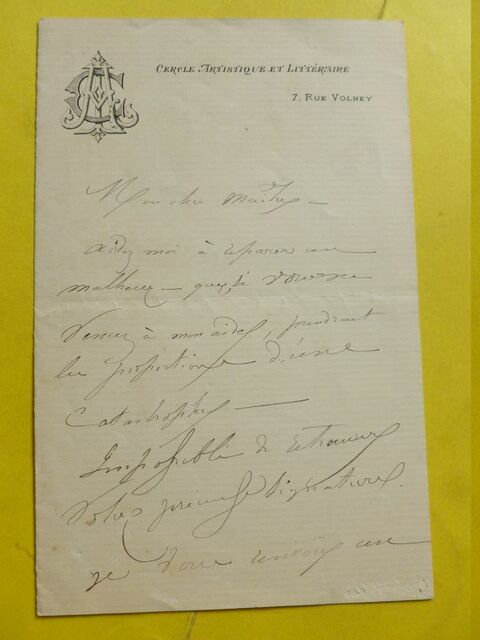 Cercle Artistique et Littéraire
7, Rue Volney
Mon cher maître –
aidez moi à réparer un
malheur – qui, si vous ne
venez à mon aide, prendrait
les proportions d'une
Catastrophe —
Impossible de retrouver
votre précieuse signature.
je vous envoie un